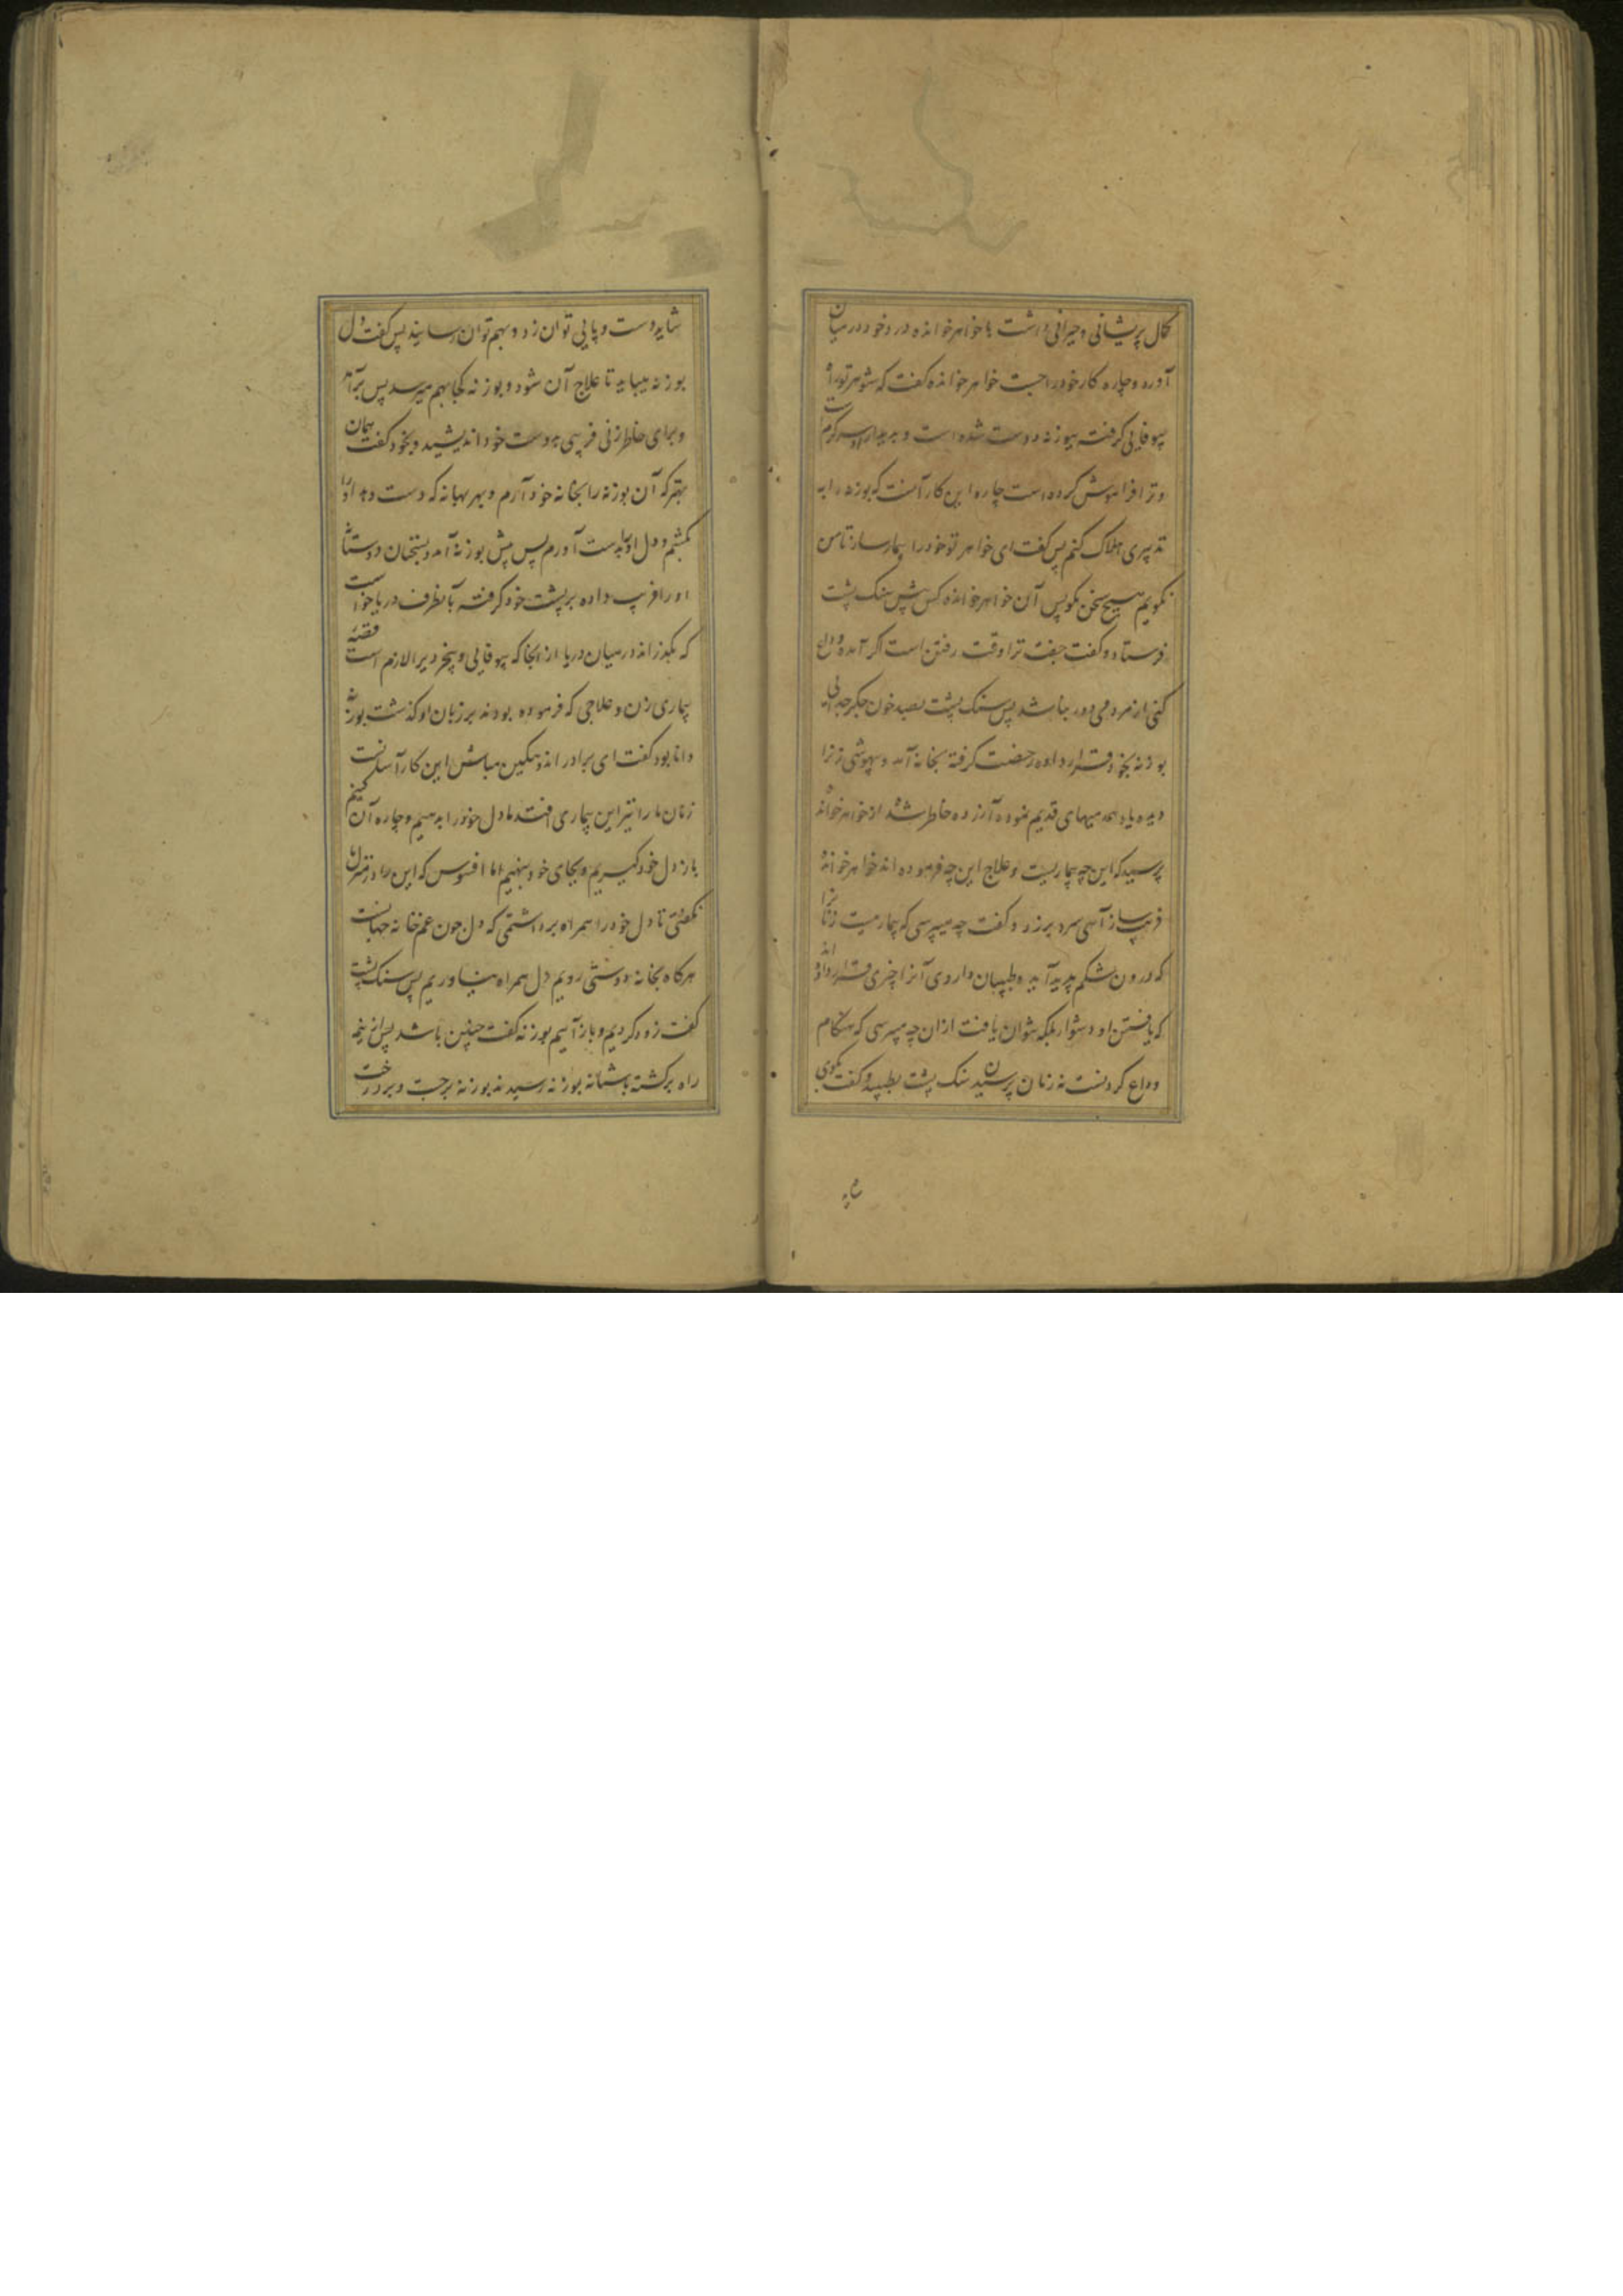 کمال پریشانی و حیرانی داشت با خواهر خوانده درد خود در میان
آورد و چاره کار خود را جست خواهر خوانده گفت که شوهر تو راه
بیوفایی گرفته ببوزنه دوست شده است و بدیدار او سرگرمست
و ترا فراموش کرده است چاره این کار آنست که بوزنه را به
تدبیری هلاک کنم پس گفت ای خواهر تو خود را بیمار ساز تا من
نگویم هیچ سخن مگو پس آن خواهر خوانده کس پیش سنگ پشت
فرستاد و گفت جفت ترا وقت رفتن است اگر آمده وداع
کنی از مردمی دور نباشد پس سنگ پشت بصد خون جگر جدایی
بوزنه بخود قرار داده رخصت گرفته بخانه آمد و بیهوشی زن را
دیده یاد همدمیهای قدیم نموده آزرده خاطر شد از خواهر خوانده
پرسید که این چه بیماریست و علاج این چه فرموده اند خواهر خوانده
فریب ساز آهی سرد بر زد و گفت چه میپرسی که بیماریست زنانرا
که درون شکم پدید آید و طبیبان داروی آنرا چیزی قرار داده اند
که یافتن او دشوار بلکه نتوان یافت ازان چه میپرسی که هنگام
وداع کردنست نه زمان پرسیدن سنگ پشت بطپید و گفت بگوی
شاید دست و پایی توان زد و بهم توان رسانید پس گفت دل
بوزنه میباید تا علاج آن شود و بوزنه کجا بهم میرسد پس برآمد
و برای خاطر زنی فریبی بدوست خود اندیشید و بخود گفت همان
بهتر که آن بوزنه را بخانه خود آرم و بهر بهانه که دست دهد او را
بکشم و دل او بدست آورم پس پیش بوزنه آمد و بسخنان دوستانه
او را فریب داده بر پشت خود گرفته بآنطرف دریا خواست
که بگذراند در میان دریا از انجا که بیوفایی و بیخردی را لازم است قصه
بیماری زن و علاجی که فرموده بودند بر زبان او گذشت بوزنه
دانا بود گفت ای برادر اندوهگین مباش این کار آسانست
زنان ما را نیز این بیماری افتد ما دل خود را بدهیم و چاره آن کنیم
باز دل خود گیریم و بجای خود بنهیم اما افسوس که این را در منزل ما
نگفتی تا دل خود را همراه برداشتمی که دل چون غم خانه جهانست
هرگاه بخانه دوستی رویم دل همراه نیاوریم پس سنگ پشت
گفت زود گردیم و باز آییم بوزنه گفت چنین باشد پس از نیمه
راه برگشته باشیانه بوزنه رسیدند بوزنه برجست و بر درخت